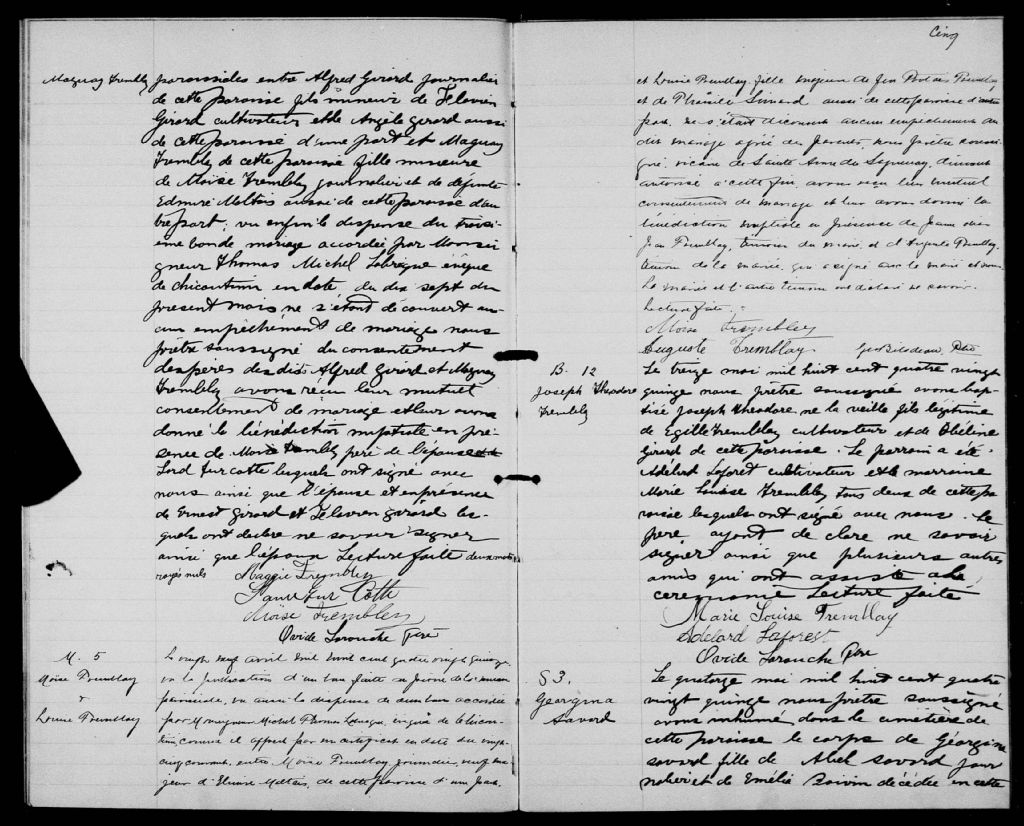 Maguay Trembly
paroissiales entre Alfred Girard journalier
de cette paroisse fils mineur de Telovien
Girard cultivateur et de Angele girard aussi
de cette paroisse d'une part et Maguay
Trembly de cette paroisse fille mineure
de Moïse Trembly journalier et de défunte
Edmire Maltais aussi de cette paroisse d'au
tre part; vu enfin la dispense du troisi-
ème ban de mariage accordée par Monsei
gneur Thomas Michel Labreque évêque
de chicoutimi en date du dix sept du
présent mois ne s'étant découvert au-
cun empêchement de mariage nous
prêtre soussigné du consentement
des pères des dits Alfred Girard et Maguay
Trembly avons réçu leur mutuel
consentement de mariage et leur avons
donné la bénédiction nuptiale en pré-
sence de Moïse Trembly père de l'épouse
Lord Sur cotte lesquels ont signé avec
nous ainsi que l'épouse et en présence
de Ernest Girard et Telovien girard les-
quels ont declare ne savoir signer
ainsi que l'époux Lecture faite deux mots
rayés nuls Maggie Trembley
Cotte
Moïse Trembley
Ovide Larouche Ptre
M. 5
Moïse Tremblay
&
Louise Tremblay
Le vingt neuf avril mil huit cent quatre vingt quinze,
vu la publication d'un ban faite au prône de la messe
paroissiale, vu aussi la dispense de deux bans accordée
par Monseigneur Michel Thomas Labreque, évêque de Chicou-
timi, comme il appert par un certificat en date du vingt-
cinq courant, entre Moïse Tremblay journalier, veuf ma
jeur d'Elmire Maltais, de cette paroisse d'une part,
Cinq
et Louise Tremblay, fille majeure de Jean Tremblay
et de Simard aussi de cette paroisse d'autre
part, ne s'étant découvert aucun empêchement au
dit mariage nous prêtre soussi
gné, vicaire de Sainte Anne du Saguenay, dûment
autorisé à cette fin avons reçu leur mutuel
consentement de mariage et leur avons donné la
bénédiction nuptiale en présence de
Jean Tremblay, témoin du marié, et d'Auguste Tremblay
témoin de la mariée, qui a signé avec le marié et nous.
La mariée et l'autre témoin ont déclaré ne savoir.
Lecture faite.
Moïse Trembley
Auguste Tremblay Geo Bilodeau, Ptre
B. 12
Joseph Theodore
Trembly
Le treize mai mil huit cent quatre vingt
quinze nous prêtre soussigné avons bap-
tisé Joseph Theodore né la veille fils légitime
de Trembley cultivateur et de
girard de cette paroisse. Le parrain a été
Adélard Laforet cultivateur et la marraine
Marie Louise Trembley tous deux de cette pa
roisse lesquels ont signé avec nous. Le
père ayant de clare ne savoir
signer ainsi que plusieurs autres
amis qui ont assisté a la
ceremonie Lecture faite
Marie Louise Tremblay
Adélard Laforest
Ovide Larouche Ptre
S 3.
Georgina
Savard
Le quatorze mai mil huit cent quatre
vingt quinze nous prêtre soussigné
avons inhumé dans le cimetière de
cette paroisse le corps de Géorgina
savard fille de Abel savard jour
nalier et de Emélie Boivin décédée en cette